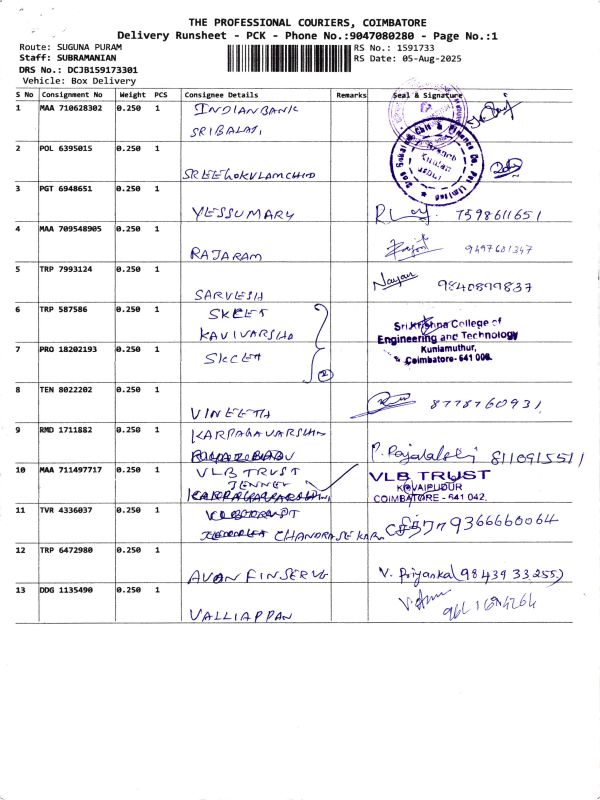 THE PROFESSIONAL COURIERS, COIMBATORE
Delivery Runsheet - PCK - Phone No.:9047080280 - Page No.:1
Route: SUGUNA PURAM
RS No.: 1591733
Staff: SUBRAMANIAN
RS Date: 05-Aug-2025
DRS No.: DCJB159173301
Vehicle: Box Delivery
S No Consignment No Weight PCS Consignee Details Remarks Seal & Signature
1 MAA 710628302 0.250 1 INDIANBANK
SRIBALAJI
2 POL 6395015 0.250 1
SREEGOKULAMCHID
3 PGT 6948651 0.250 1
YESSUMARY 7598611651
4 MAA 709548905 0.250 1
RAJARAM 9497601347
5 TRP 7993124 0.250 1
SARVESH Nayan 9840899837
6 TRP 587586 0.250 1 SKCET
KAVIVARSHD
7 PRO 18202193 0.250 1 SKCET
2
Sri Krishna College of
Engineering and Technology
Kuniamuthur,
Coimbatore- 641 008.
8 TEN 8022202 0.250 1
VINEETA 8778760931
9 RMD 1711882 0.250 1 KARPAGAVARSHIN
P. Rajalakshi 8110915511
10 MAA 711497717 0.250 1 VLB TRUST
JENNEY
VLB TRUST
KOVAIPUDUR
COIMBATORE - 641 042.
11 TVR 4336037 0.250 1
CHANDRASEKAR 9366660064
12 TRP 6472980 0.250 1
AVON FINSERVE V. Priyanka (98439 33255)
13 DDG 1135490 0.250 1
VALLIAPPAN